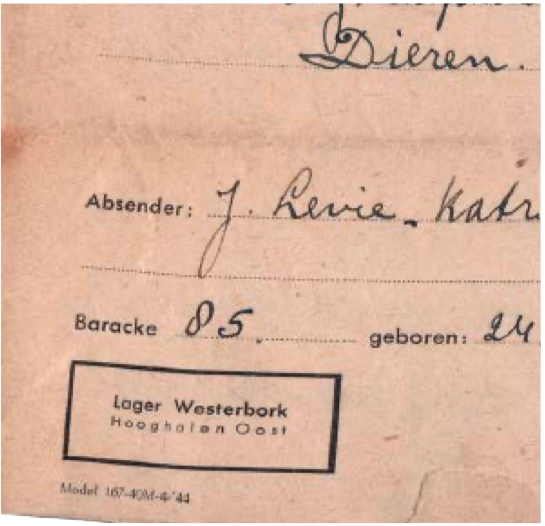 Dieren.
Absender: J. Levie - Katr
Baracke 85. geboren: 24
Lager Westerbork
Hooghalen Oost
Model 167-40M-4-'44